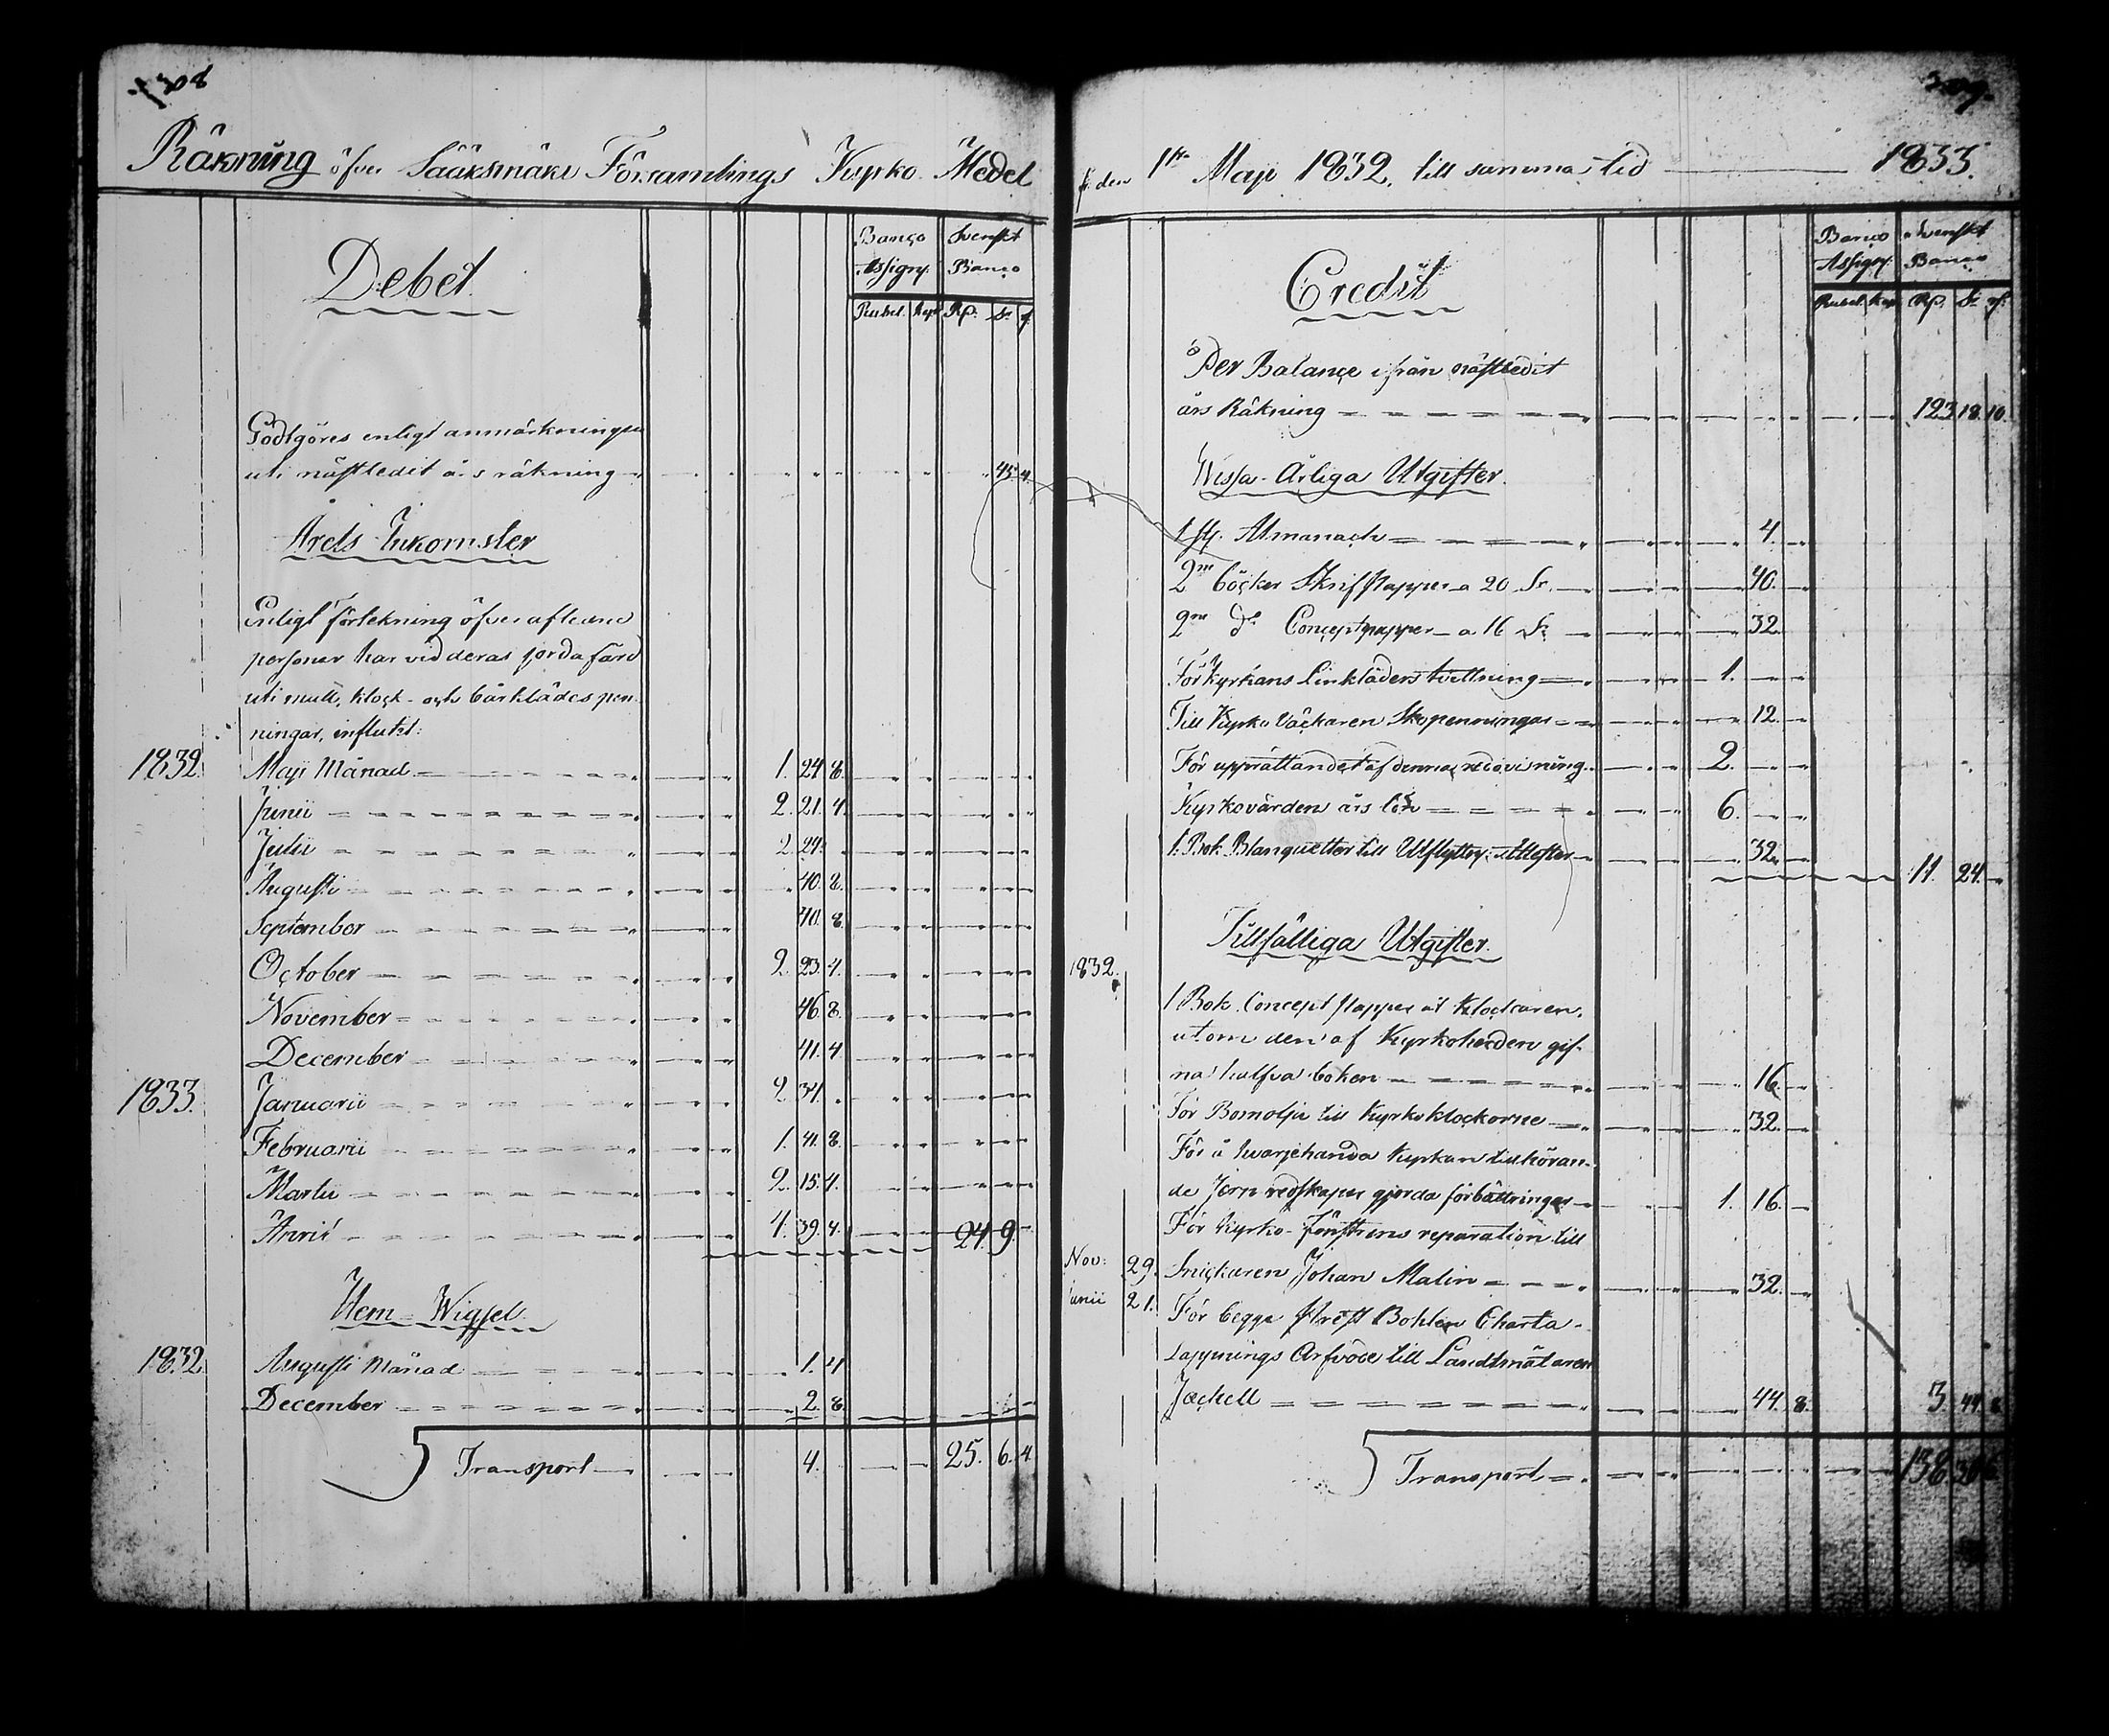 308
Räkning öfver Sääksmäki Församlings Kyrko Medel
Debet
Banco Svenskt
Assign. Banco
Rubel. Kop. Rd. Sk. rf.
Godtgöres enligt anmärkningen
uti nästledit års räkning 45. 4.
Årets Inkomster
Enligt Förtekning öfver afledne
personer har vid deras jordafärd
uti mull, klock- och bårklädes pen-
ningar, influtit:
1832. Maji Månad 1. 24. 8.
Junii 2. 21. 4.
Julii 2. 24.
Augusti 40. 8.
September 40. 8.
October 2. 23. 4.
November 46. 8.
December 41. 4.
1833. Januarii 2. 34.
Februarii 1. 41. 8.
Martii 2. 15. 4.
Aprill 4. 39. 4. 24. 9.
Hem-Wigsel.
1832 Augusti Månad 1. 4
December 2. 8.
Transport 4. 25. 6. 4
309.
fr. den 1sta Maji 1832. till samma tid 1833.
Credit
Banco Svenskt
Assign. Banco
Rubel. Kop. Rd. Sk. rf.
Per Balance ifrån nästledit
års Räkning 123. 18. 10.
Wissa Årliga Utgifter.
1 st. Almanach 4.
2ne böcker Skrifpapper a 20 Sk. 40.
2ne do Conceptpapper a 16 Sk 32
För kyrkans Linkläders tvettning 1.
Till Kyrko Väckaren Skopenningar 12.
För upprättandet af denna redovisning 2.
Kyrkovärden års lön 6.
1. Bok Blanquetter till Utflyttn. Attester 32. 11. 24.
Tillfälliga Utgifter.
1832.
1 Bok Concept papper åt Klockaren,
utom den af Kyrkoherden gif-
na halfva boken 16.
För Bomolja till Kyrkoklockorne 32.
För å hvarjehanda kyrkan tillhöran-
de Jern redskaper gjorda förbättringar 1. 16.
För Kyrko-fönstrens reparation till
Nov: 29. Snickaren Johan Malin 32.
Junii 21. För begge Prest Bohlen Charta-
Läggnings Arfvode till Landtmätaren
Jackell 44. 8. 3. 44. 8
Transport 138.